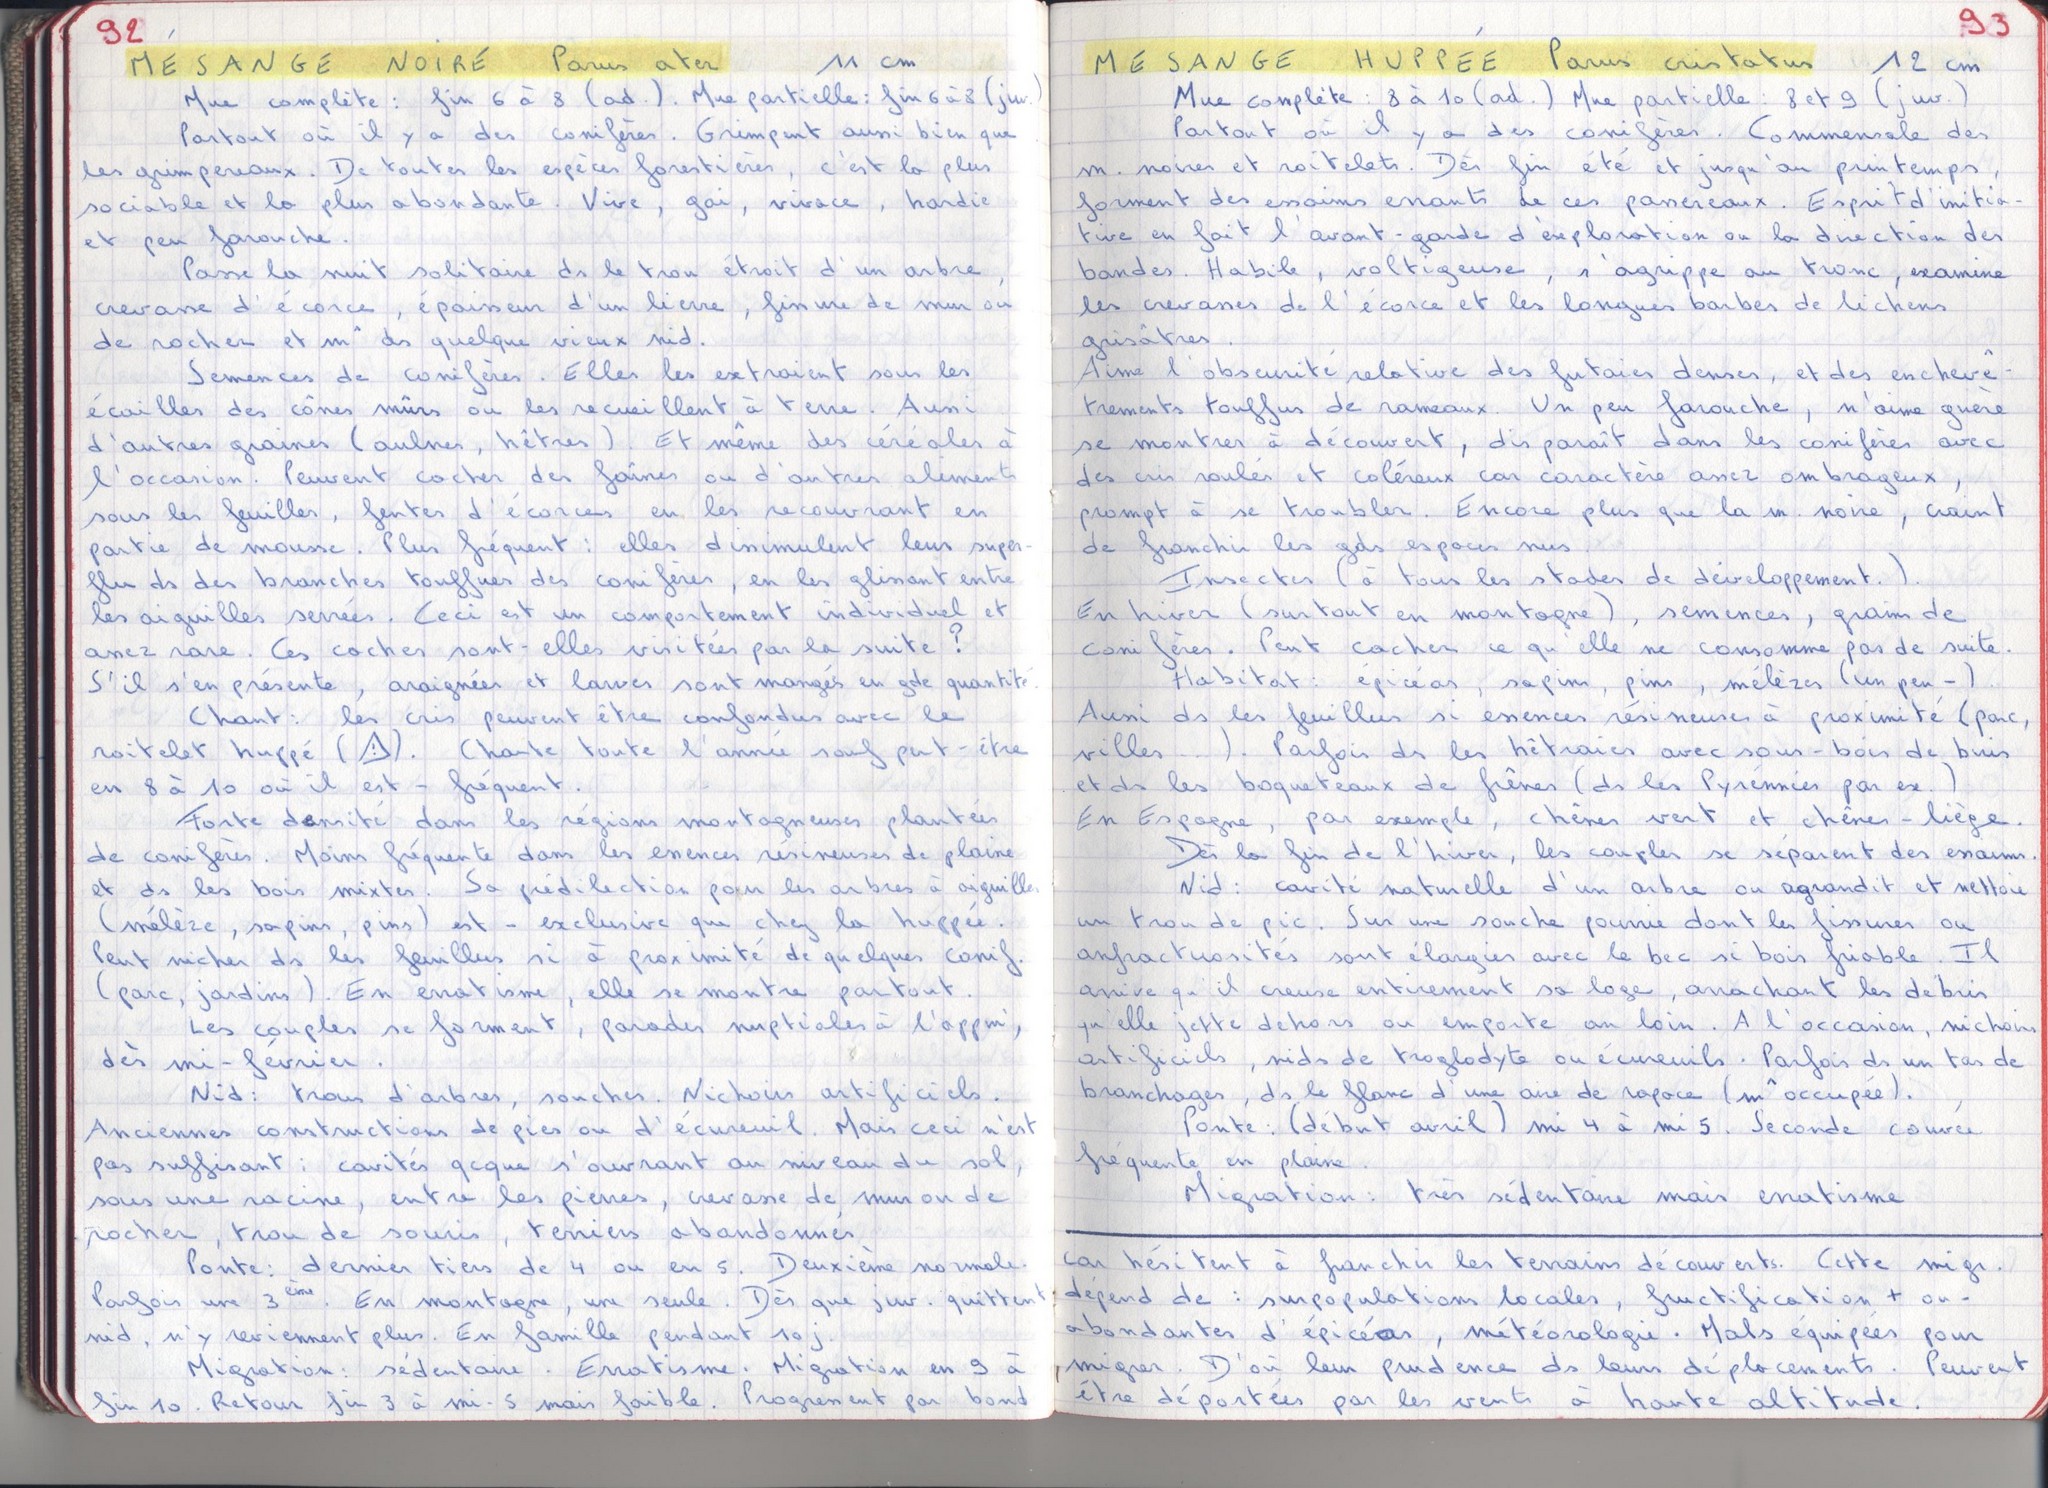 92
MÉSANGE NOIRE Parus ater 11 cm
Mue complète : fin 6 à 8 (ad.). Mue partielle : fin 6 à 8 (juv.)
Partout où il y a des conifères. Grimpent aussi bien que
les grimpereaux. De toutes les espèces forestières, c'est la plus
sociable et la plus abondante. Vive, gai, vivace, hardie
et peu farouche.
Passe la nuit solitaire ds le trou étroit d'un arbre,
crevasse d'écorce, épaisseur d'un lierre, fissure de mur ou
de rocher et m^ ds quelque vieux nid.
Semences de conifères. Elles les extraient sous les
écailles des cônes mûrs ou les recueillent à terre. Aussi
d'autres graines (aulnes, hêtres). Et même des céréales à
l'occasion. Peuvent cacher des faînes ou d'autres aliments
sous les feuilles, fentes d'écorces en les recouvrant en
partie de mousse. Plus fréquent : elles dissimulent leur super-
flu ds des branches touffues des conifères, en les glissant entre
les aiguilles serrées. Ceci est un comportement individuel et
assez rare. Ces caches sont-elles visitées par la suite ?
S'il s'en présente, araignées et larves sont mangés en gde quantité.
Chant : les cris peuvent être confondus avec le
roitelet huppé (⚠). Chante toute l'année sauf peut-être
en 8 à 10 où il est - fréquent.
Forte densité dans les régions montagneuses plantées
de conifères. Moins fréquente dans les essences résineuses de plaine
et ds les bois mixtes. Sa prédilection pour les arbres à aiguilles
(mélèze, sapins, pins) est - exclusive que chez la huppée.
Peut nicher ds les feuillus si à proximité de quelques conif.
(parc, jardins). En erratisme, elle se montre partout.
Les couples se forment, parades nuptiales à l'appui,
dès mi-février.
Nid : trous d'arbres, souches. Nichoirs artificiels.
Anciennes constructions de pies ou d'écureuil. Mais ceci n'est
pas suffisant : cavités qcque s'ouvrant au niveau du sol,
sous une racine, entre les pierres, crevasse de mur ou de
rocher, trou de souris, terriers abandonnés
Ponte : dernier tiers de 4 ou en 5. Deuxième normale.
Parfois une 3ème. En montagne, une seule. Dès que juv. quittent
nid, n'y reviennent plus. En famille pendant 10 j.
Migration : sédentaire. Erratisme. Migration en 9 à
fin 10. Retour fin 3 à mi-5 mais faible. Progressent par bond
93
MÉSANGE HUPPÉE Parus cristatus 12 cm
Mue complète : 8 à 10 (ad.) Mue partielle : 8 et 9 (juv.)
Partout où il y a des conifères. Commensale des
m. noires et roitelets. Dès fin été et jusqu'au printemps,
forment des essaims errants de ces passereaux. Esprit d'initia-
tive en fait l'avant-garde d'exploration ou la direction des
bandes. Habile, voltigeuse, s'agrippe au tronc, examine
les crevasses de l'écorce et les longues barbes de lichens
grisâtres.
Aime l'obscurité relative des futaies denses, et des enchevê-
trements touffus de rameaux. Un peu farouche, n'aime guère
se montrer à découvert, disparaît dans les conifères avec
des cris roulés et coléreux car caractère assez ombrageux,
prompt à se troubler. Encore plus que la m. noire, craint
de franchir les gds espaces nus.
Insectes (à tous les stades de développement.).
En hiver (surtout en montagne), semences, grains de
conifères. Peut cacher ce qu'elle ne consomme pas de suite.
Habitat : épicéas, sapins, pins, mélèzes (un peu -).
Aussi ds les feuillus si essences résineuses à proximité (parc,
villes ...). Parfois ds les hêtraies avec sous-bois de buis
et ds les boqueteaux de frênes (ds les Pyrénnées par ex.)
En Espagne, par exemple, chênes vert et chênes-liège.
Dès la fin de l'hiver, les couples se séparent des essaims.
Nid : cavité naturelle d'un arbre ou agrandit et nettoie
un trou de pic. Sur une souche pourrie dont les fissures ou
anfractuosités sont élargies avec le bec si bois friable. Il
arrive qu'il creuse entirement sa loge, arrachant les débris
qu'elle jette dehors ou emporte au loin. A l'occasion, nichoirs
artificiels, nids de troglodyte ou écureuils. Parfois ds un tas de
branchages, ds le flanc d'une aire de rapace (m^ occupée).
Ponte : (début avril) mi 4 à mi 5. Seconde couvée
fréquente en plaine.
Migration : très sédentaire mais erratisme
car hésitent à franchir les terrains découverts. Cette migr.
dépend de : surpopulations locales, fructification + ou -
abondantes d'épicéas, météorologie. Mals équipées pour
migrer. D'où leur prudence ds leurs déplacements. Peuvent
être déportées par les vents à haute altitude.